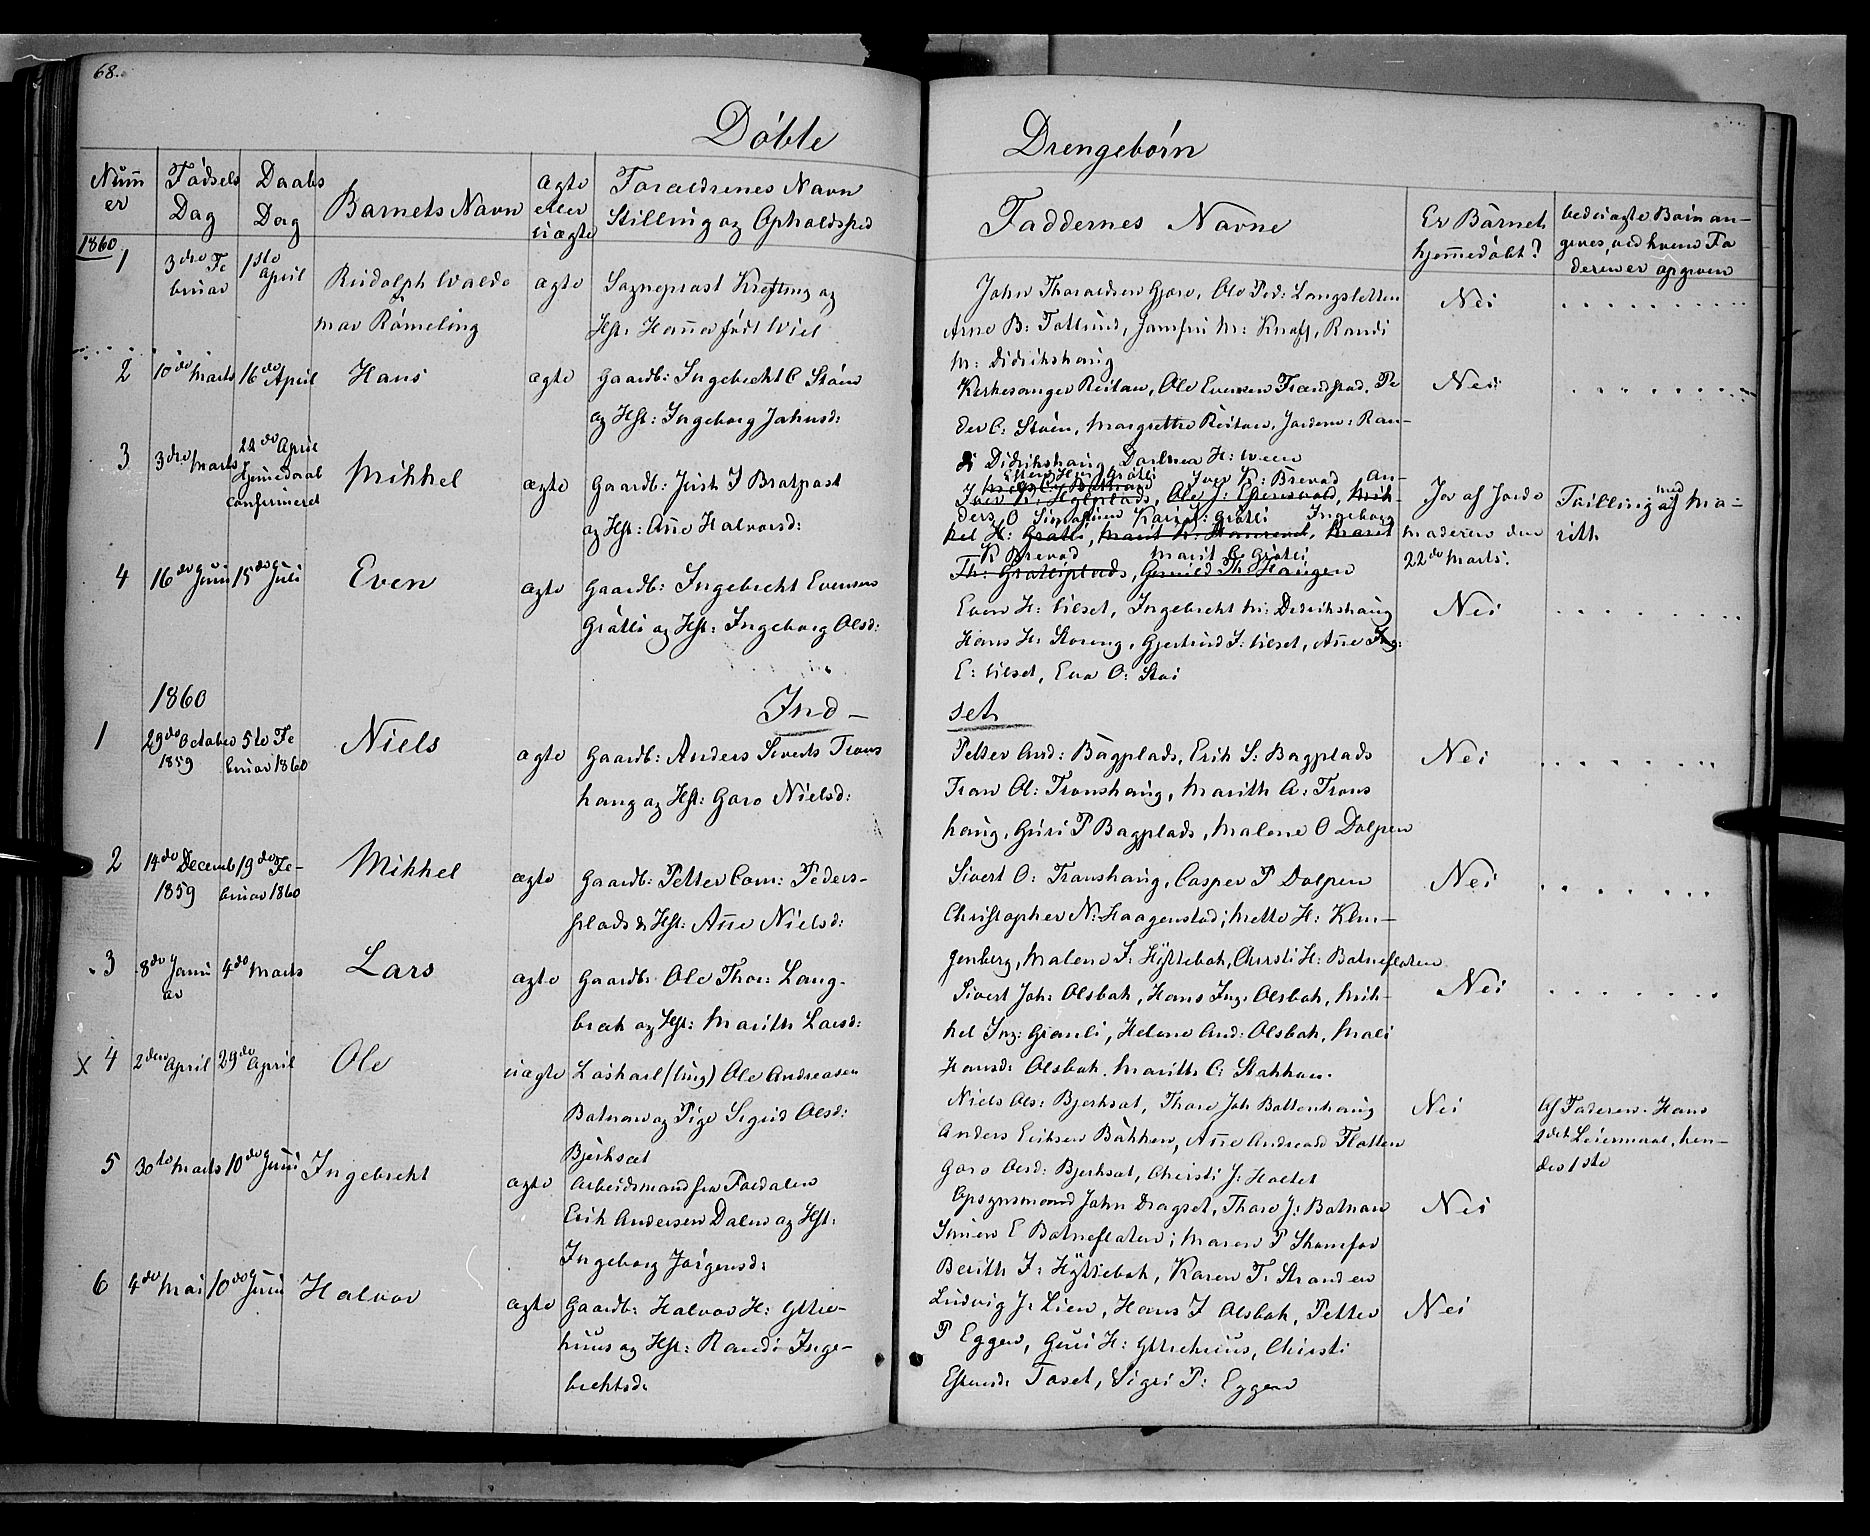 68.
Döbte Drengebörn
Num̄er Födsels Dag Daabs Dag Barnets Navn ægte eller uægte Forældrenes Navn Stilling og Opholdssted
Faddernes Navne Er Barnet hjem̄edöbt? ved uægte Börn angives, ved hvem Faderen er opgiven
1860
1 3die Februar 1ste April Rudolph Waldemar Römeling ægte Sogneprest Krefting og
Hst: Han̄a født Wiel
John Thoraldsen Gjære, Ole Ped: Langsletten
Arne B: Tollund, Jomfru M: Knoff, Randi
M: Didrikshaug
Nei
2 10de Marts 16de April Hans ægte Gaardb: Ingebrecht C Stöen
og Hst: Ingeborg Johnsd:
Kirkesanger Reitan, Ole Evensen Trandstad, Pe
der C: Stöen, Margrethe Reitan, Jordem: Ran-
di Didrikshaug
Nei
3 3die Marts 22de April Hjem̄edaab confirmeret Mikkel ægte Gaardb: Just J Bratpast
og Hst: An̄e Halvorsd:
Iver K: Brevad An-
ders O Karen: Gråtli Ingeborg
K Brevad Marit C Gråtli
Jo af Jordemoderen den 22de Marts.
Tvilling med Marith
4 16de Juni 15de Juli Even ægte Gaardb: Ingebrecht Evensen
Gråtli og Hst: Ingeborg Olsd:
Even H: Uset, Ingebrecht M: Didrikshaug
Hans H: Storeng, Gjertrud I: Uset, An̄e Ing:
E: Uset, Eva O: Stai
Nei
1860 Ind-set
1 29de October 1859 5te Februar 1860 Niels ægte Gaardb: Anders Siverts Trons
haug og Hst: Goro Nielsd:
Petter And: Bagplads, Erik S: Bagplads
Tron Ol: Tronshaug, Marith A: Trons
haug, Guri P Bagplads, Malene O Dolpen
Nei
2 14de Decemb 1859 19de Februar 1860 Mikkel ægte Gaardb: Petter Com: Peders-
plads & Hst: An̄e Nielsd:
Sivert O: Tronshaug, Casper P Dolpen
Christopher N: Haagenstad; Mette H: Klin-
genberg, Malene I: Hyttebak, Christi H: Botnefloten
Nei
3 8de Januar 4de Marts Lars ægte Gaardb: Ole Thor: Lang-
brek og Hst: Marith Larsd:
Sivert Joh: Olsbak, Hans Ing: Olsbak, Mik-
kel Ing: Granli, Helene And: Olsbak, Mali
Hansd: Olsbak. Marith C: Stakkan.
Nei
x 4 2den April 29de April Ole uægte Löskarl (ung) Ole Andreasen
Botnen og Pige Sigrid Olsd:
Bjerksæt
Niels Ols: Bjerksæt, Thore Joh Boltenhaug
Anders Eriksen Bakken, An̄e Andreasd Flotten
Goro Olsd: Bjerksæt, Christi J: Holtet
Nei
Af Faderen. Hans
2det Leiermaal, hen-
des 1ste
5 30te Marts 10de Juni Ingebrecht ægte Arbeidsmand fra Foldalen
Erik Andersen Dalen og Hst:
Ingeborg Jörgensd:
Opsynsmand John Dragset, Thore J: Botnan
Simen E Botnefloten; Maren P Skomfor
Berith I: Hyttebak, Karen T: Stranden
Nei
6 4de Mai 10de Juni Halvor ægte Gaardb: Halvor H: Ytter-
huus og Hst: Randi Inge-
brektsd:
Ludvig J: Lien, Hans I Olsbak, Petter
P Eggen, Guri H: Ytterhuus, Christi
Estensd: Toset, Sigri P: Eggen
Nei